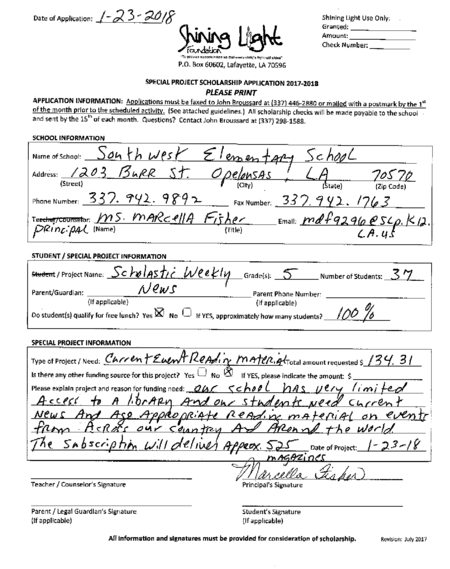 Date of Application: 1-23-2018
Shining Light Use Only.
Granted:
Amount:
Check Number:
Shining Light
Foundation
P.O. Box 60602, Lafayette, LA 70596
SPECIAL PROJECT SCHOLARSHIP APPLICATION 2017-2018
PLEASE PRINT
APPLICATION INFORMATION: Applications must be faxed to John Broussard at (337) 446-2880 or mailed with a postmark by the 1st
of the month prior to the scheduled activity. (See attached guidelines.) All scholarship checks will be made payable to the school
and sent by the 15th of each month. Questions? Contact John Broussard at (337) 298-1588.
SCHOOL INFORMATION
Name of School: South West Elementary School
Address: 1203 Burr St. Opelousas, LA 70570
(Street) (City) (State) (Zip Code)
Phone Number: 337.942.9892 Fax Number: 337.942.1763
Teacher/Counselor: Ms. Marcella Fisher Email: mdf9296@slp.k12.
Principal (Name) (Title) LA.us
STUDENT / SPECIAL PROJECT INFORMATION
Student / Project Name: Scholastic Weekly Grade(s): 5 Number of Students: 37
News
Parent/Guardian: Parent Phone Number:
(If applicable) (If applicable)
Do student(s) qualify for free lunch? Yes ☒ No ☐ If YES, approximately how many students? 100 %
SPECIAL PROJECT INFORMATION
Type of Project / Need: Current Event Reading Material Total amount requested $ 134.31
Is there any other funding source for this project? Yes ☐ No ☒ If YES, please indicate the amount: $
Please explain project and reason for funding need: our school has very limited
Access to A library And our students need current
News And Age Appropriate Reading material on events
from Across our country And Around the world.
The Subscription will deliver Approx. 525 Date of Project: 1-23-18
magazines
Marcella Fisher
Teacher / Counselor's Signature Principal's Signature
Parent / Legal Guardian's Signature Student's Signature
(If applicable) (If applicable)
All information and signatures must be provided for consideration of scholarship. Revision: July 2017